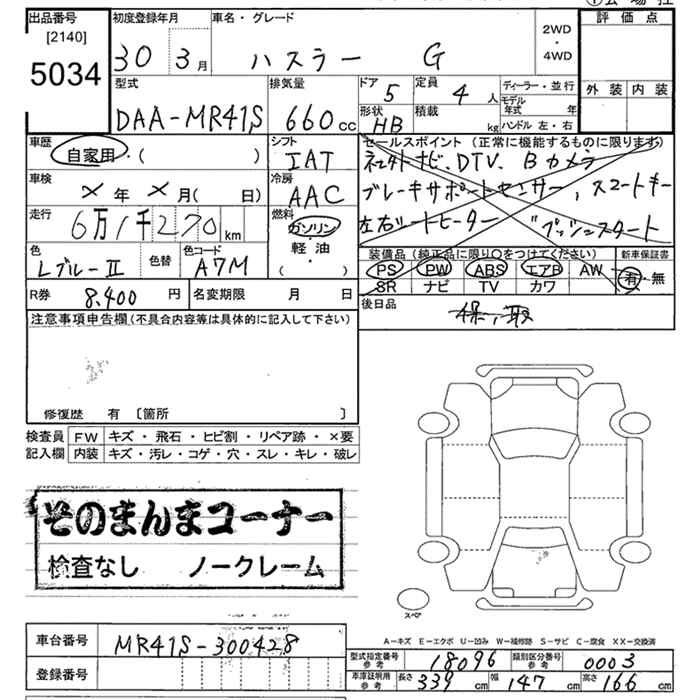 出品番号
[2140]
5034
初度登録年月
30 3月
車名・グレード
ハスラー G
2WD
・
4WD
評価点
外装 内装
型式
DAA-MR41S
排気量
660cc
ドア
5
定員
4人
形状
HB
積載
kg
ディーラー・並行
モデル年式 年
ハンドル 左・右
車歴
自家用・( )
シフト
IAT
セールスポイント (正常に機能するものに限ります)
DTV、Bカメラ
ブレーキサポートセンサー、スマートキー
左右シートヒーター プッシュスタート
車検
×年×月( 日)
冷房
AAC
走行
6万1千270km
燃料
ガソリン
軽・油
( ・ )
色
Lブルー II
色替
色コード
A7M
装備品 (純正品に限り○をつけてください)
PS PW ABS エアB AW
SR ナビ TV カワ
新車保証書
有・無
R券 8,400円
名変期限 月 日
後日品
保、取
注意事項申告欄(不具合内容等は具体的に記入して下さい)
修復歴 有 [箇所 ]
検査員記入欄
FW キズ・飛石・ヒビ割・リペア跡・×要
内装 キズ・汚レ・コゲ・穴・スレ・キレ・破レ
そのまんまコーナー
検査なし ノークレーム
スペア
A-キズ E-エクボ U-凹み W-補修跡 S-サビ C-腐食 XX-交換済
車台番号 MR41S-300428
登録番号
型式指定番号参考 18096
類別区分番号参考 0003
車庫証明用参考 長さ339cm 幅147cm 高さ166cm